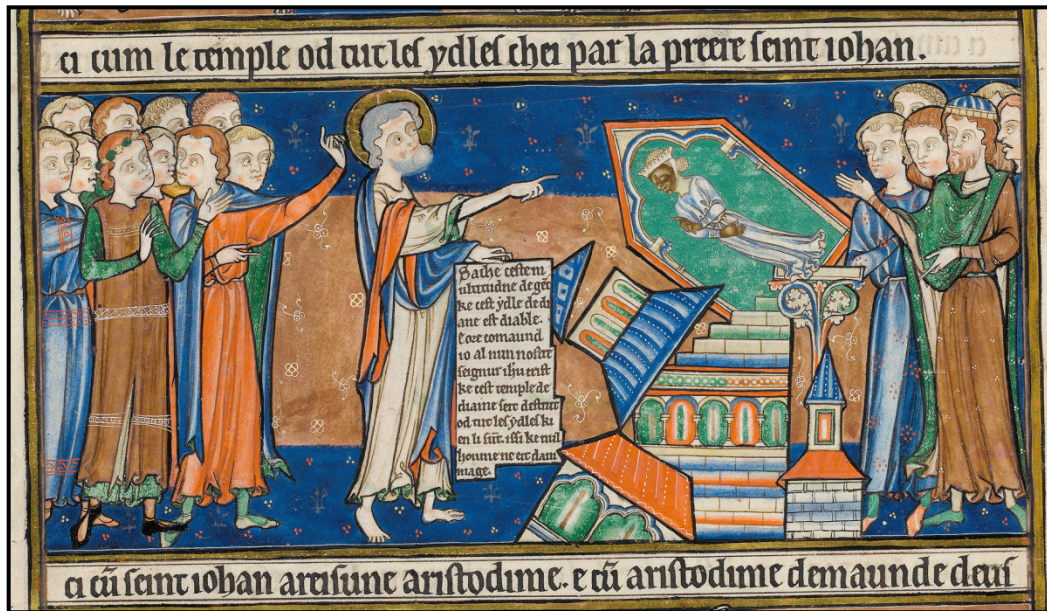 ci cum le temple od tut les ydles chei par la preere seint iohan.
Sache ceste m
ultitudne de gẽt
ke cest ydle de di
ane est diable.
e ore comaund
io al nun nostre
seignur ihu crist
ke cest temple de
diane seit destrut
od tut les ydles ki
en li sũt. issi ke nul
houme ne eit dam
mage.
ci cũ seint iohan areisune aristodime. e cũ aristodime demaunde deus